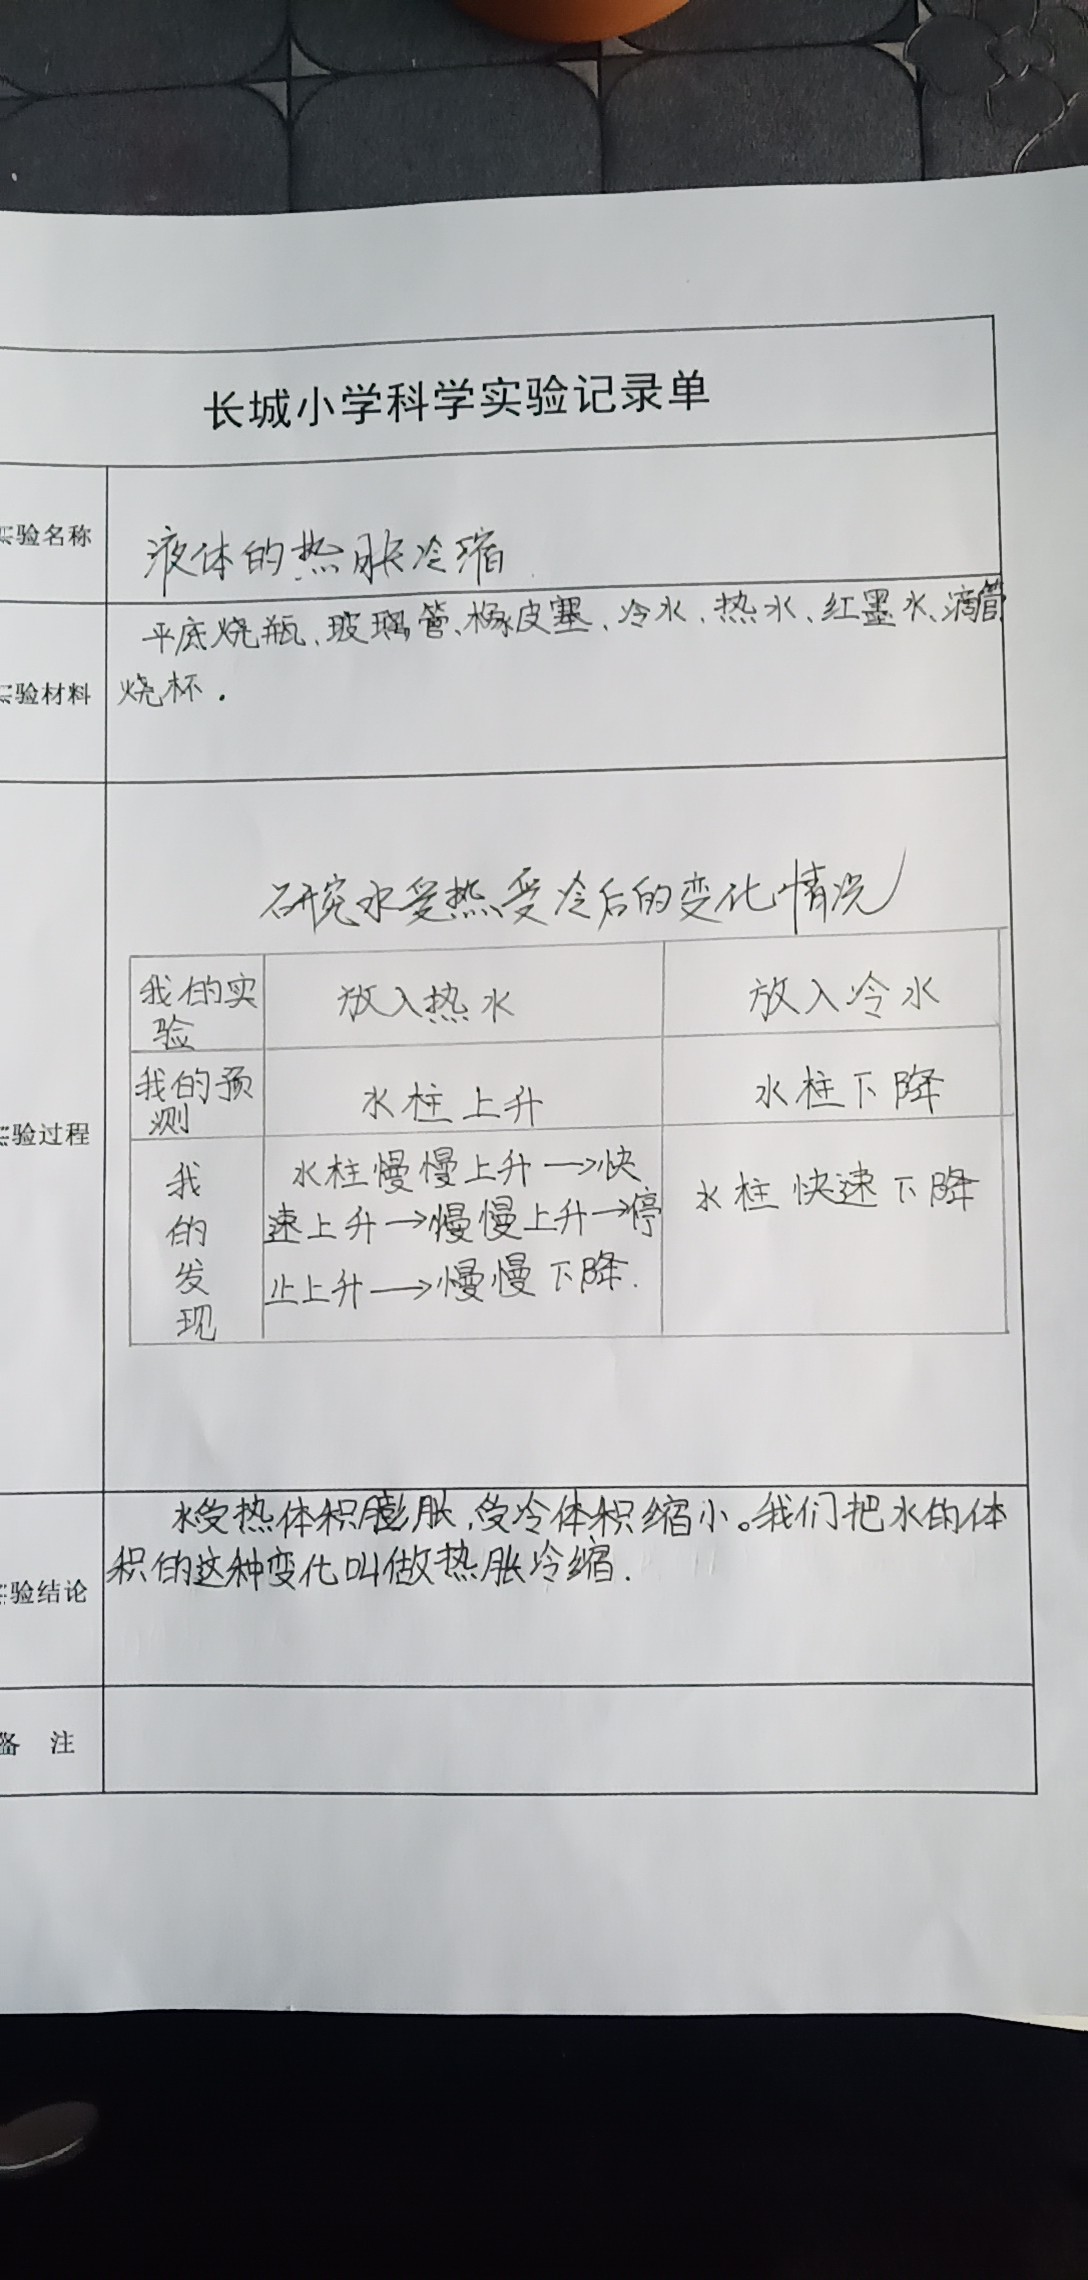 长城小学科学实验记录单
实验名称
液体的热胀冷缩
平底烧瓶、玻璃管、橡皮塞、冷水、热水、红墨水、滴管
实验材料
烧杯.
研究水受热受冷后的变化情况
我的实
验
放入热水
放入冷水
我的预
测
水柱上升
水柱下降
实验过程
我
的
发
现
水柱慢慢上升→快
速上升→慢慢上升→停
止上升→慢慢下降.
水柱快速下降
水受热体积膨胀,受冷体积缩小。我们把水的体
积的这种变化叫做热胀冷缩.
实验结论
备 注